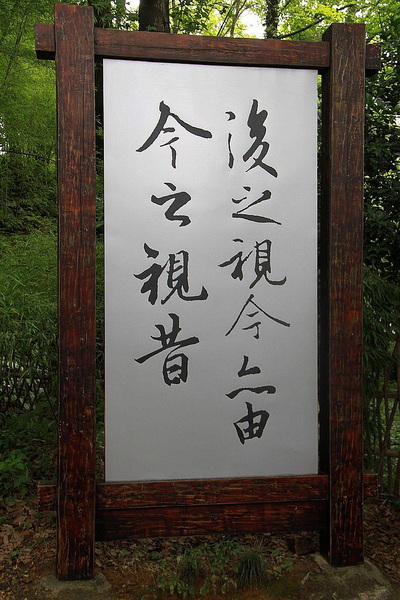 後之視今亦由
今之視昔